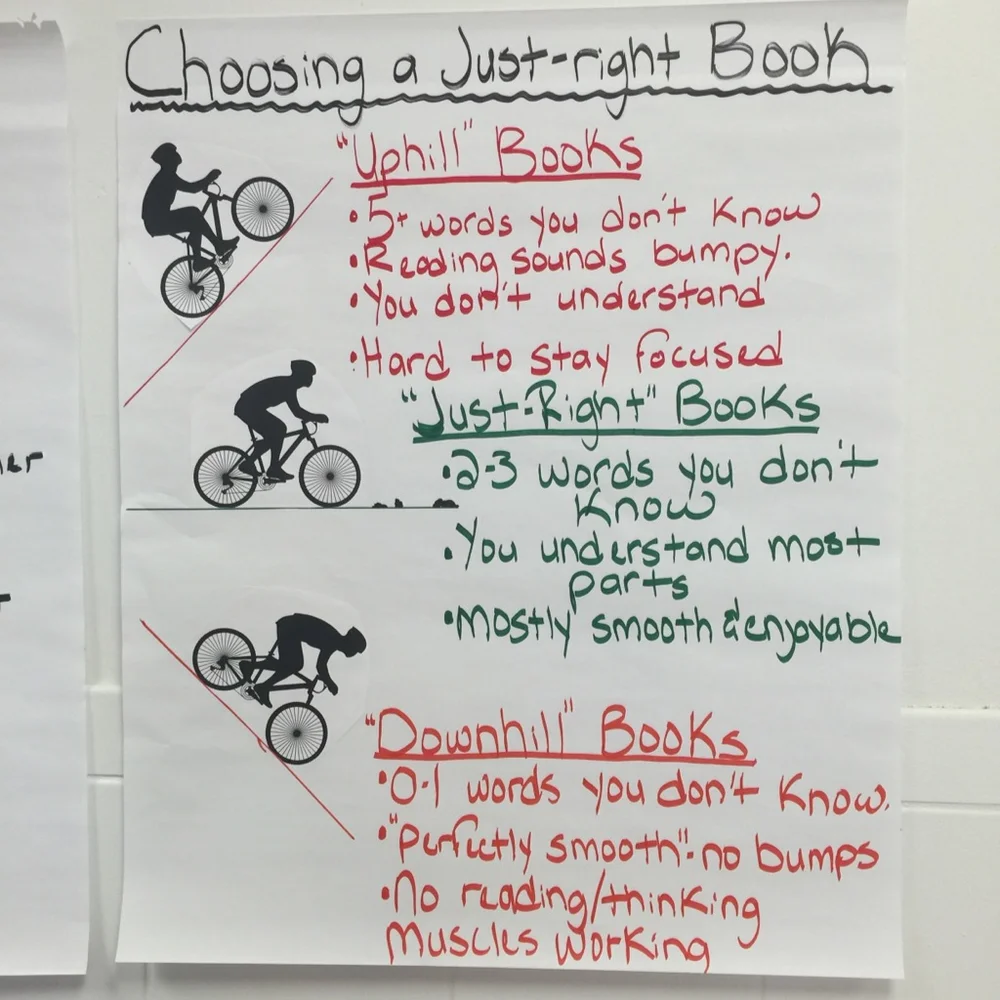 Choosing a Just-right Book
"Uphill" Books
• 5+ words you don't know
• Reading sounds bumpy.
• You don't understand
• Hard to stay focused
"Just-Right" Books
• 2-3 words you don't
know
• You understand most
parts
• Mostly smooth & enjoyable
"Downhill" Books
• 0-1 words you don't know.
• "Perfectly smooth"- no bumps
• No reading/thinking
Muscles working